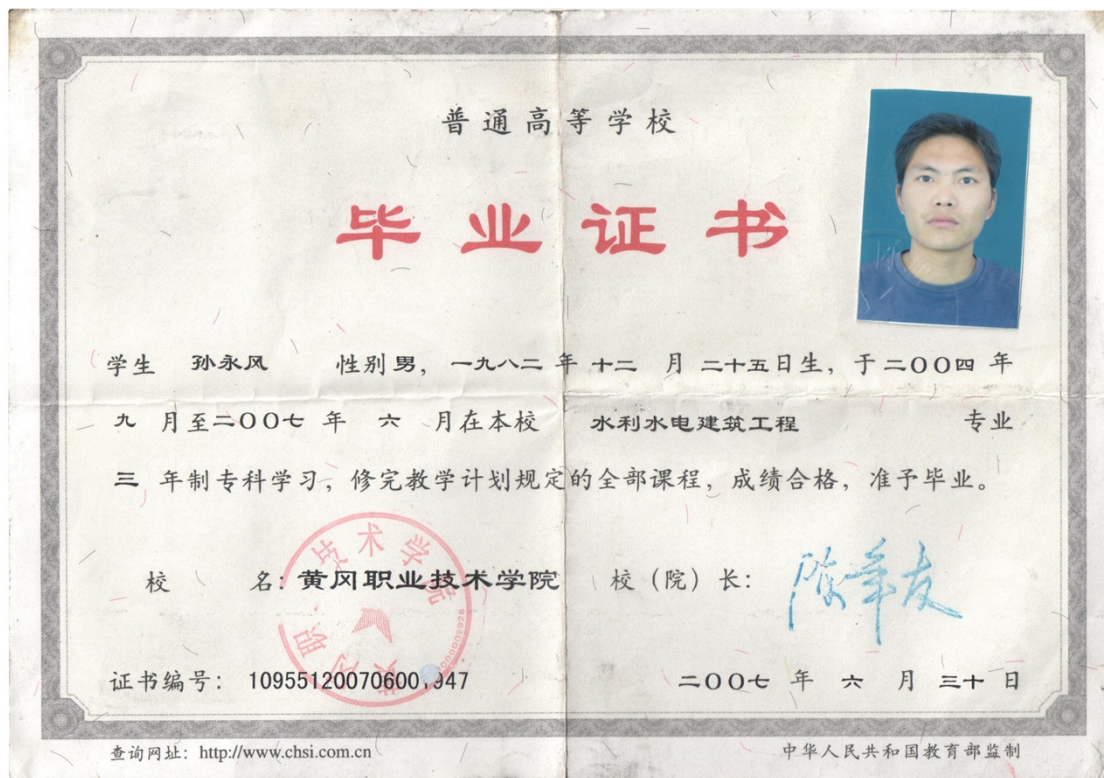 普通高等学校
毕业证书
学生 孙永风 性别男，一九八二年十二月二十五日生，于二〇〇四年
九月至二〇〇七年六月在本校 水利水电建筑工程 专业
三年制专科学习，修完教学计划规定的全部课程，成绩合格，准予毕业。
校 名：黄冈职业技术学院 校（院）长：
证书编号： 二〇〇七年六月三十日
查询网址：http://www.chsi.com.cn 中华人民共和国教育部监制